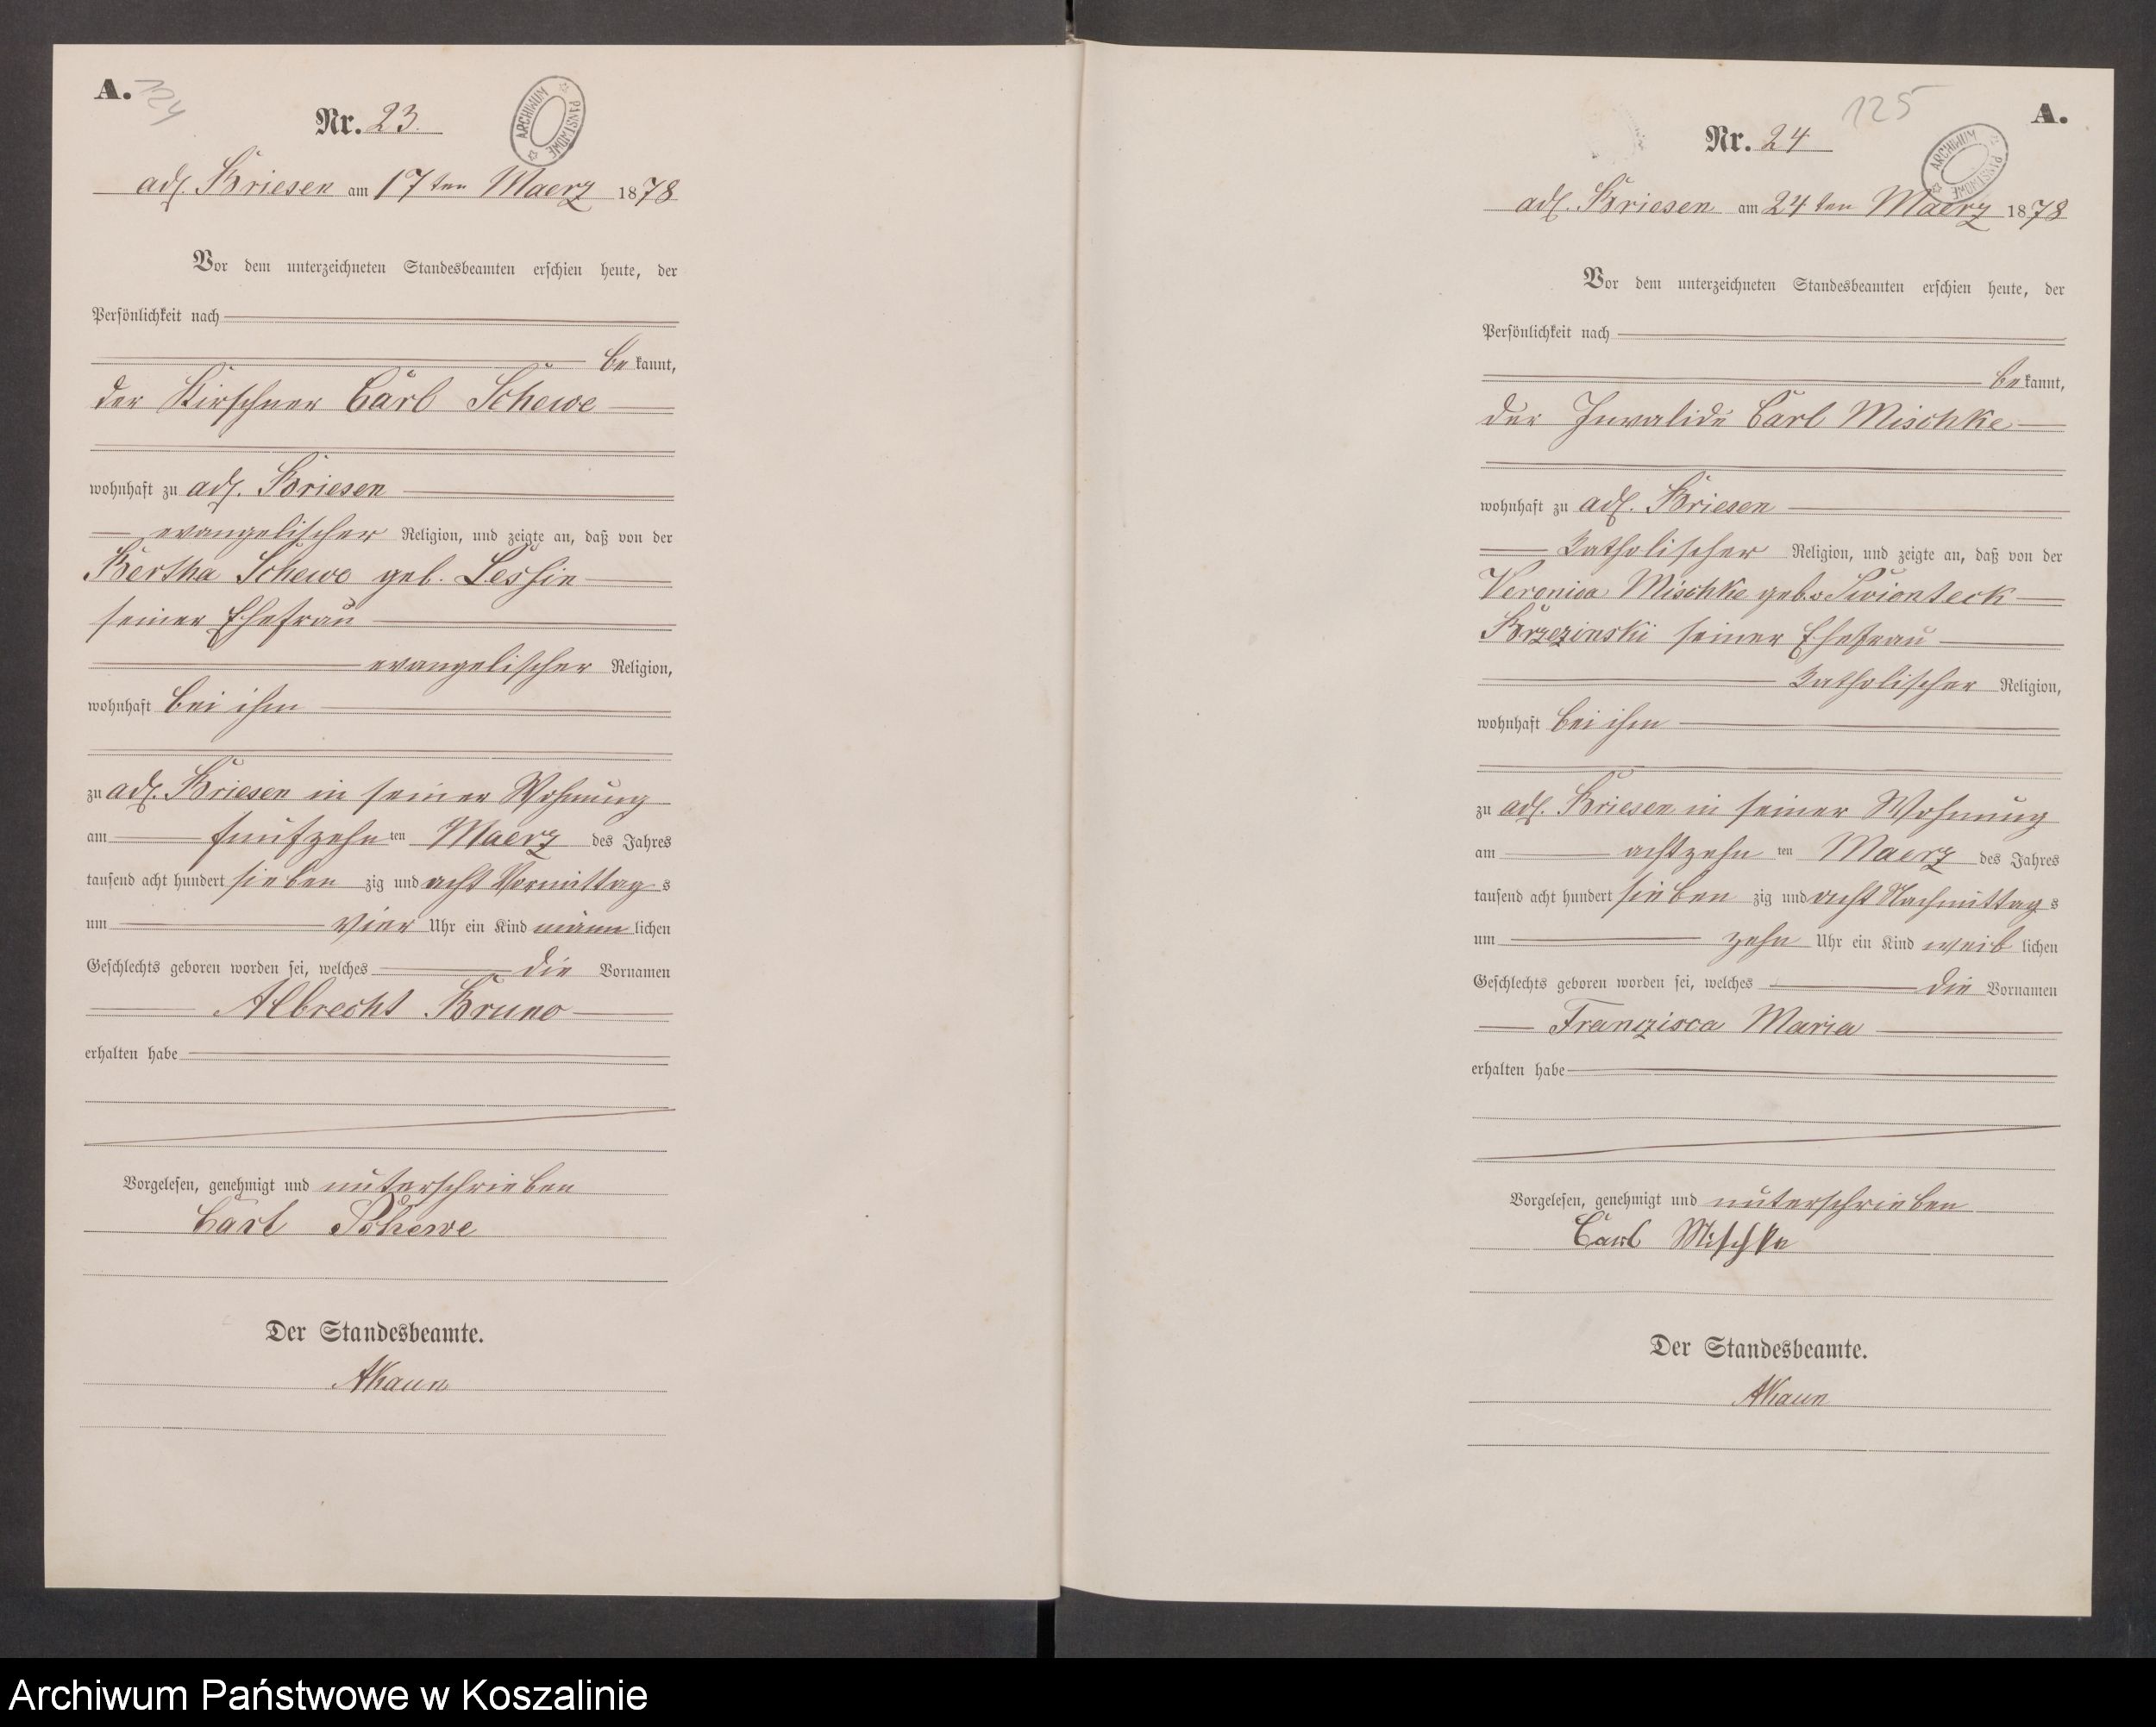 A. 124
Nr. 23.
adl. Briesen am 17ten Maerz 1878
Vor dem unterzeichneten Standesbeamten erschien heute, der
Persönlichkeit nach
bekannt,
der Kirschner Carl Schewe
wohnhaft zu adl. Briesen
evangelischer Religion, und zeigte an, daß von der
Bertha Schewe geb. Lessin
seiner Ehefrau
evangelischer Religion,
wohnhaft bei ihm
zu adl. Briesen in seiner Wohnung
am fünfzehn ten Maerz des Jahres
tausend acht hundert sieben zig und acht Vormittag s
um vier Uhr ein Kind männ lichen
Geschlechts geboren worden sei, welches die Vornamen
Albrecht Bruno
erhalten habe
Vorgelesen, genehmigt und unterschrieben
Carl Schewe
Der Standesbeamte.
AKaun
ARCHIWUM PAŃSTWOWE
125 A.
Nr. 24
adl. Briesen am 24ten Maerz 1878
Vor dem unterzeichneten Standesbeamten erschien heute, der
Persönlichkeit nach
bekannt,
der Invalide Carl Mischke
wohnhaft zu adl. Briesen
katholischer Religion, und zeigte an, daß von der
Veronica Mischke geb. v Swionteck
Brzezinski seiner Ehefrau
katholischer Religion,
wohnhaft bei ihm
zu adl. Briesen in seiner Wohnung
am achtzehn ten Maerz des Jahres
tausend acht hundert sieben zig und acht Nachmittag s
um zehn Uhr ein Kind weib lichen
Geschlechts geboren worden sei, welches die Vornamen
Franzisca Maria
erhalten habe
Vorgelesen, genehmigt und unterschrieben
Carl Mischke
Der Standesbeamte.
AKaun
ARCHIWUM PAŃSTWOWE
Archiwum Państwowe w Koszalinie